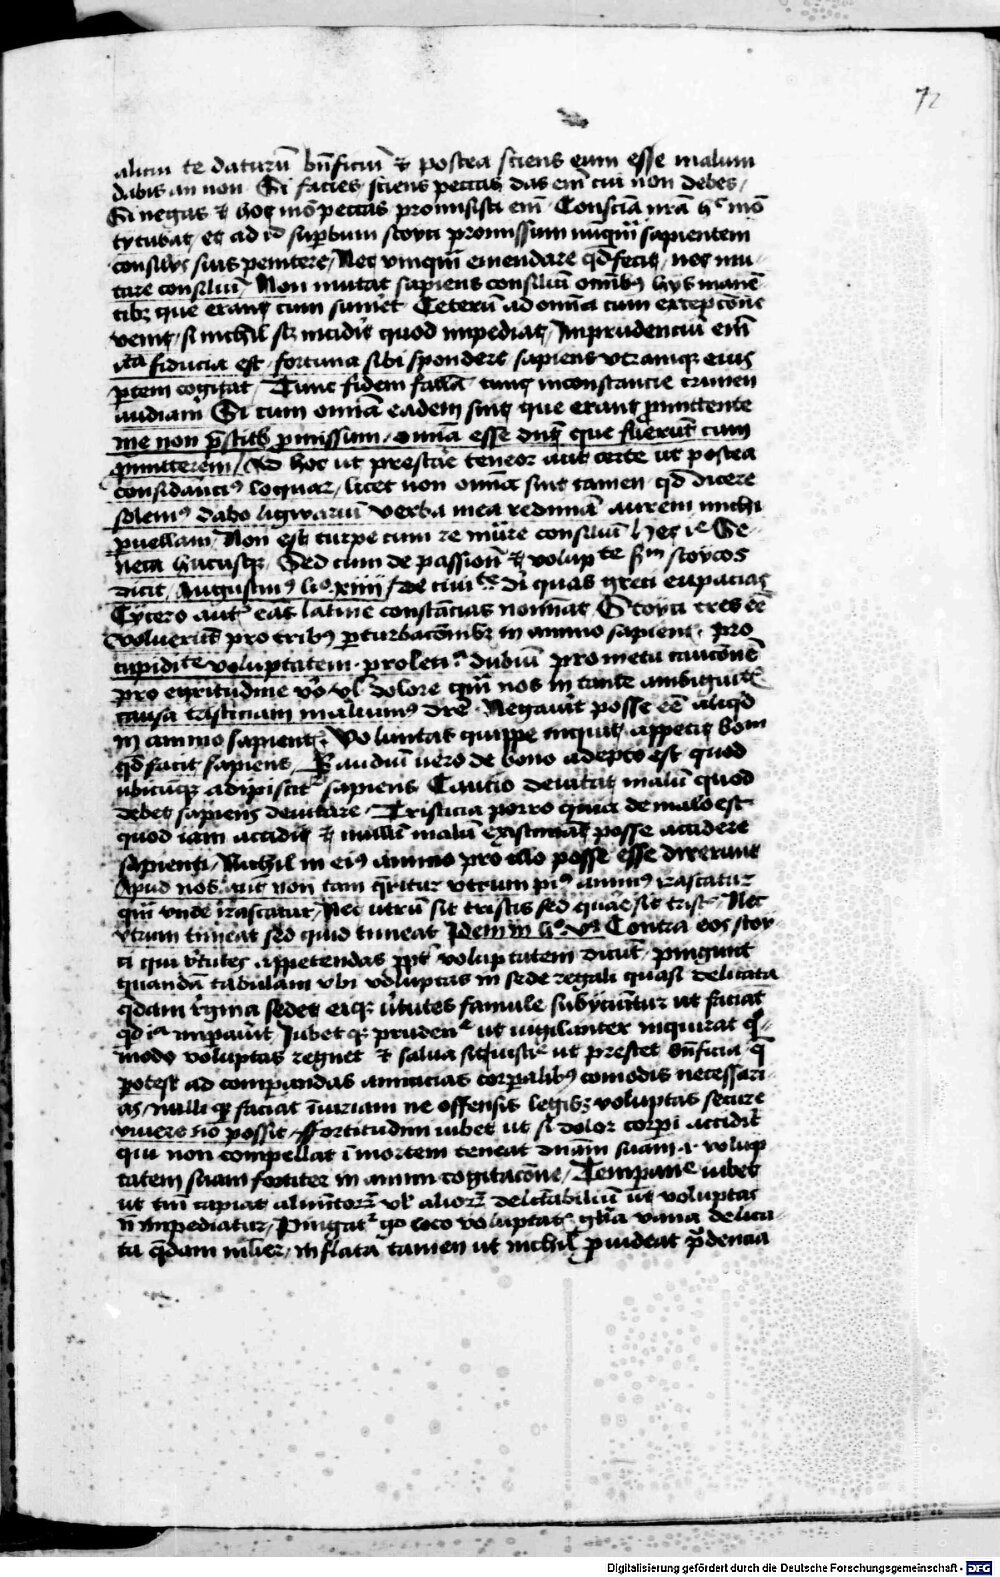 72
alicui te daturū bn̄ficiū & postea sciens eum esse malum
dabis an non Si facies sciens peccas das em̄ cui non debes
Si negas & hoc mō peccas promisisti em̄ Consciā nrā hc mō
tytubat et ad id supbum stoyci promissum nūqm̄ sapientem
consilys suis penitere Nec vmqm̄ emendare qd fecit nec mu-
tare consiliū Non mutat sapiens consiliū omībꝫ hys manē
tibꝫ que erant cum sumeret Ceterū ad omīa cum excepcōne
venit si nichil inciderit quod impediat Imprudenciū em̄
ista fiducia est fortuna sibi spondere sapiens vtramqꝫ eius
ptem cogitat Tunc fidem fallā tunc inconstancie crimen
audiam Si cum omīa eadem sint que erant pmittente
me non pstitero pmissum omīa esse dn̄t que fuerūt cum
pmitterem Ad hoc ut prestare teneor aut certe ut postea
loquar licet non omīa sint tamen qd dicere
solemꝰ dabo verba mea redimā aurem michi
puellam Non est turpe cum re mutare consiliū hec ille Se-
neca hucusqꝫ Sed cum de passionī & voluptate scdm stoycos
dicit Augustinꝰ li xiiii de ciuite di quas greci eupacias
Cycero autē eas latine constancias nomīat Stoyci tres eē
voluerūt pro tribꝫ perturbacōnibꝫ in animo sapientis pro
cupiditate voluptatem pro leticia Gaudiū pro metu caucōnē
pro egritudine vo vl dolore qm̄ nos vitande ambiguitatis
causa tristiciam maluimꝰ dicē Negauūt posse eē aliqd
in animo sapientis Voluntas quippe inquit appetit bonum
qd facit sapiens Gaudiū vero de bono adepto est quod
ubicūqꝫ adipiscitur sapiens Cautio deuitat malū quod
debet sapiens deuitare Tristicia porro quia de malo est
quod iam accidit & nullū malū existimāt posse accidere
sapienti Nichil in eiꝰ animo pro illo posse esse dixerunt
Apud nos ait non tam qritur vtrum piꝰ animꝰ irascatur
qm̄ vnde irascatur Nec utrū sit tristis sed quare sit tristis Nec
vtrum timeat sed quid timeat Idem in li vo Contra eos stoy
ci qui vtutes appetendas ppt voluptatem dicūt pingunt
quandā tabulam vbi voluptas in sede regali quasi delicata
qdam rgina sedet eiqꝫ vtutes famule subyciūtur ut faciāt
qd illa impauit Iubet qꝫ prudentie ut vigilanter inquirat quo-
modo voluptas regnet & salua sit Iusticie ut prestet bn̄ficia q
potest ad compandas amicicias corpalibꝫ comodis necessari-
as nulli qꝫ faciat iniuriam ne offensis legibꝫ voluptas secure
viuere nō possit ffortitudini iubet ut si dolor corpi acciderit
qui non compellat ī mortem teneat dnām suam i volup
tatem suam fortiter in animi cogitacōne Tempancie iubet
ut tm̄ capiat alimētorꝫ vl aliorꝫ delectabiliū ut voluptas
n̄ impediatur Pingatur go loco voluptatis gloria vana delica-
ta qdam mulier inflata tamen ut nichil puideat prudencia
Digitalisierung gefördert durch die Deutsche Forschungsgemeinschaft - DFG